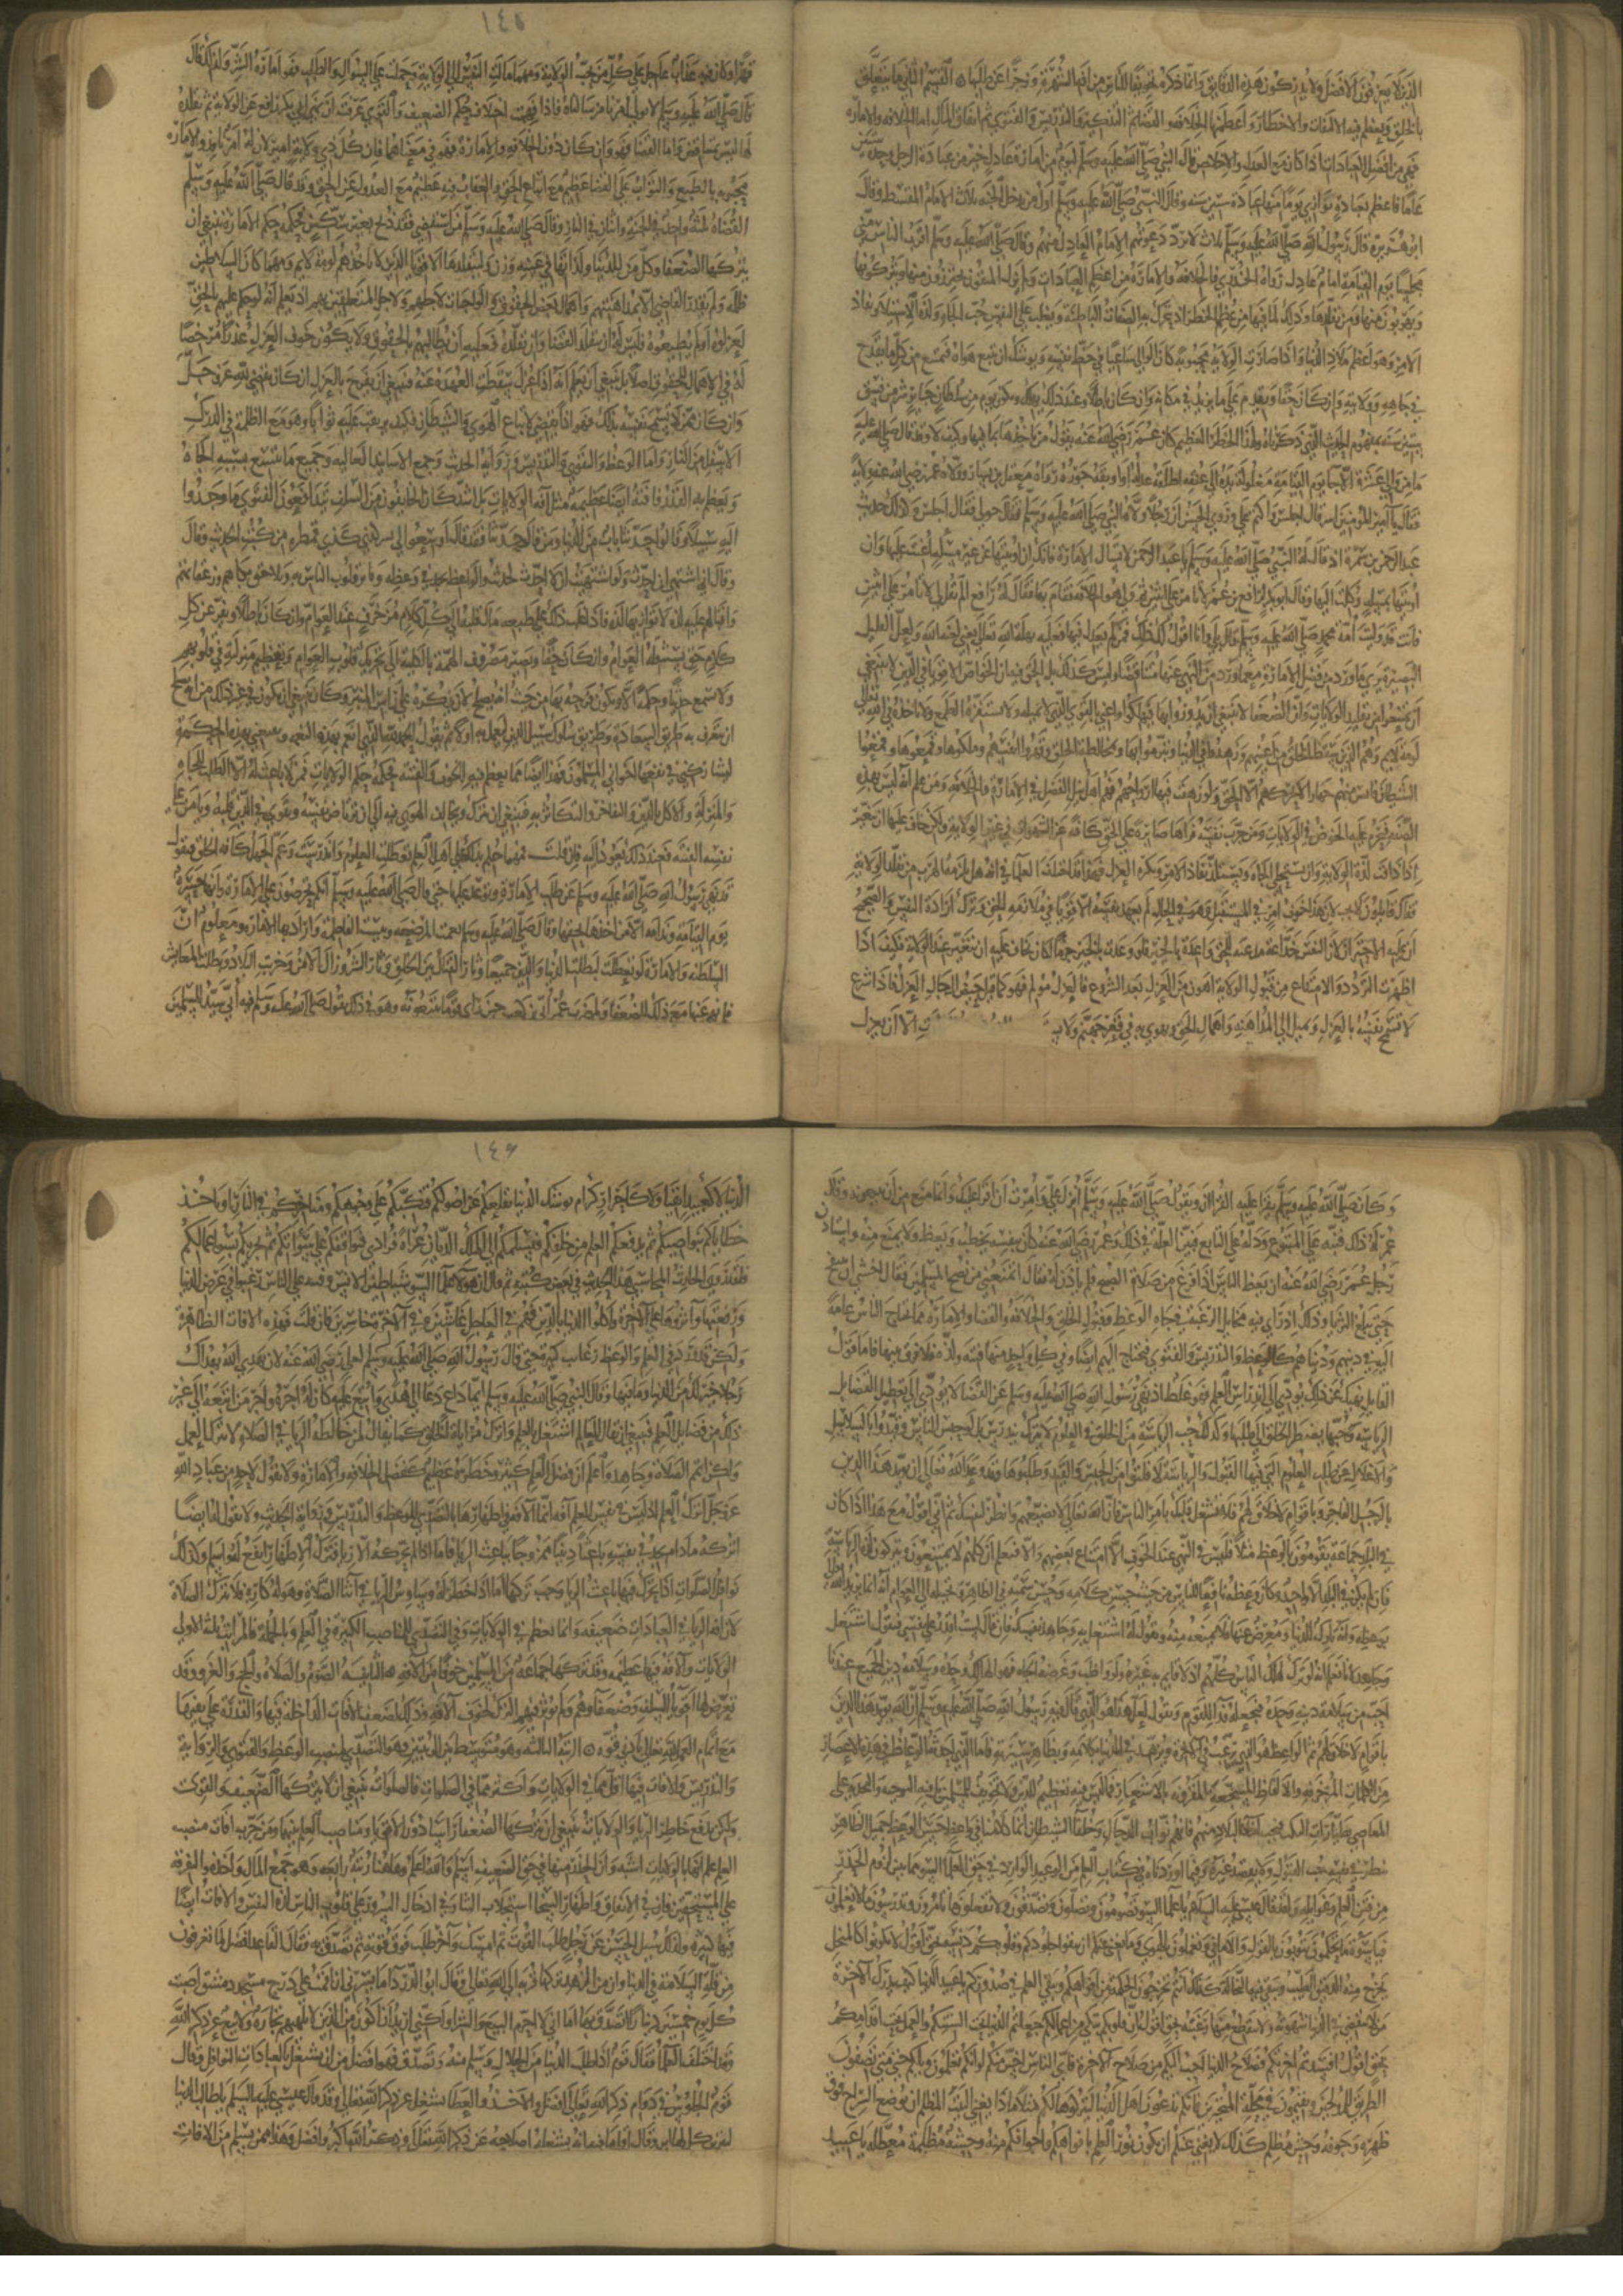 الذين لا يعرفون الافضل ولا يدركون هذه الدقايق وانما ذكرنا تخويفا للناس من افة الشهرة وزجرا عن طلبها القسم الثاني ما يتعلق
بالخلق وتعظم فيه الافات والاخطار واعظمها الخلافة ثم القضا ثم التذكير والتدريس والفتوى ثم انفاق المال اما الخلافة والامارة
فهي من افضل العبادات اذا كان مع العدل والاخلاص قال النبي صلى الله عليه وسلم ليوم من امام عادل خير من عبادة الرجل وحده ستين
عاما فاعظم بعبادة يوازي يوما منها عبادة ستين سنة وقال النبي صلى الله عليه وسلم اول من يدخل الجنة ثلاثة الامام المقسط وقال
ابو هريرة قال رسول الله صلى الله عليه وسلم ثلاثة لا ترد دعوتهم الامام العادل منهم وقال صلى الله عليه وسلم اقرب الناس مني
مجلسا يوم القيامة امام عادل رواه الخدري فالخلافة والامارة من اعظم العبادات ولم يزل المتقون يحترزون منها ويتركونها
ويهربون منها ومن تقلدها وذلك لما فيها من عظيم الخطر اذ تتحرك به الصفات الباطنة ويغلب على النفس حب الجاه ولذة الاستيلا ونفاذ
الامر وهو اعظم ملاذ الدنيا واذا صارت الولاية محبوبة كان الوالي ساعيا في حظ نفسه ويوشك ان يتبع هواه فيمتنع من كل ما يقدح
في جاهه وولايته وان كان حقا ويقدم على ما يزيد في مكانه وان كان باطلا وعند ذلك يهلك ويكون يوم من سلطان جاير شر من فسق
ستين سنة بمفهوم الحديث الذي ذكرناه ولهذا الخطر العظيم كان عمر رضي الله عنه يقول من ياخذها بما فيها وكيف لا وقد قال صلى الله عليه
ما من والي عشرة الا جا يوم القيامة مغلولة يده الى عنقه اطلقه عدله او اوبقه جوره رواه معقل بن يسار وولاه عمر رضي الله عنه ولاية
فقال يا امير المومنين اشر قال اجلس واكتم علي وروى الحسن ان رجلا ولاه النبي صلى الله عليه وسلم فقال خر لي فقال اجلس وكذلك حديث
عبد الرحمن بن سمرة اذ قال له النبي صلى الله عليه وسلم يا عبد الرحمن لا تسال الامارة فانك ان اوتيتها من غير مسالة اعنت عليها وان
اوتيتها بمسالة وكلت اليها وقال ابو بكر لرافع بن عمر لا تامرن على اثنين ثم ولي هو الخلافة فقام بها فقال له رافع الم تقل لي لا تامر على اثنين
وانت قد وليت امة محمد صلى الله عليه وسلم قال بلى وانا اقول لك ذلك فمن لم يعدل فيها فعليه بهلة الله تعالى يعني لعنة الله ولعل القليل
البصيرة يرى ما ورد من فضل الامارة مع ما ورد من النهي عنها متناقضا وليس كذلك بل الحق فيه ان الخواص الاقويا في الدين لا ينبغي
ان يمتنعوا من تقليد الولايات وان الضعفا لا ينبغي ان يدوروا بها فيهلكوا واعني بالقوي الذي لا تميله الدنيا ولا يستفزه الطمع ولا تاخذه في الله تعالى
لومة لايم وهم الذين سقط الخلق من اعينهم وزهدوا في الدنيا وتبرموا بها وبمخالطة الخلق وقهروا انفسهم وملكوها وقمعوها وقمعوا
الشيطان فايس منهم فهاولا لا يحركهم الا الحق ولو زهقت فيها ارواحهم فهم اهل نيل الفضل في الامارة والخلافة ومن علم انه ليس بهذه
الصفة فيحرم عليه الخوض في الولايات ومن جرب نفسه فراها صابرة على الحق كافة عن الشهوات في غير الولاية ولكن خاف عليها ان تتغير
اذا ذاقت لذة الولاية وان تستحلي الجاه وتستلذ نفاذ الامر وتكره العزل فهذا قد اختلف العلما في انه هل يلزمه الهرب من تقلد الولاية
فقال قايلون لا يجب لان هذا خوف امر في المستقبل وهو في الحال لم يعهد نفسه الا قويا في ملازمة الحق وترك لذات النفس والصحيح
ان عليه الاحتراز لان النفس خداعة مدعية للحق واعدة بالخير فلو وعدت بالخير جزما لكان يخاف عليه ان تتغير عند الولاية فكيف اذا
اظهرت التردد والامتناع من قبول الولاية اهون من العزل بعد الشروع فالعزل مولم فهو كما قيل حيض الرجال العزل فاذا شرع
لا تسمح نفسه بالعزل وتميل الى المداهنة واهمال الحق ويهوي به في قعر جهنم ولا يـ الا ان يعزل
١٤٥
قهرا وكان فيه عذاب عاجل على كل من يحب الولاية ومهما مالت النفس الى الولاية وحملت على السوال والطلب فهو امارة الشر ولذلك قال
قال صلى الله عليه وسلم لا نولي امرنا من سالناه فاذا فهمت اختلاف حكم الضعيف والقوي عرفت ان نهي ابي بكر رافع عن الولاية ثم تقلده
لها ليس بتناقض واما القضا فهو وان كان دون الخلافة والامارة فهو في معناهما فان كل ذي ولاية امير لان له امر نافذ والامارة
محبوبة بالطبع والثواب على القضا عظيم مع اتباع الحق والعقاب فيه عظيم مع العدول عن الحق وقد قال صلى الله عليه وسلم
القضاة ثلثة واحد في الجنة واثنان في النار وقال صلى الله عليه وسلم من استقضي فقد ذبح بغير سكين فحكمه حكم الامارة فينبغي ان
يتركها الضعفا وكل من للدنيا ولذاتها في عينه وزن وليتقلدها الاقويا الذين لا تاخذهم لومة لايم ومهما كان السلاطين
ظلمة ولم يقدر القاضي الا بمداهنتهم واهمال بعض الحقوق والواجبات لاجلهم ولاجل المتعلقين بهم اذ يعلم انه لو حكم عليهم بالحق
لعزلوه او لم يطيعوه فليس له ان يتقلد القضا وان تقلده فعليه ان يطالبهم بالحقوق ولا يكون خوف العزل عذرا مرخصا
له في الاهمال للحقوق اصلا بل ينبغي ان يعلم انه اذا عزل سقطت العهدة عنه فينبغي ان يفرح بالعزل ان كان يقضي لله عز وجل
وان كان ممن لا تسمح نفسه بذلك فهو اذا يقضي لاتباع الهوى والشيطان فكيف يرتقب عليه ثوابا وهو مع الظلمة في الدرك
الاسفل من النار واما الوعظ والفتوى والتدريس ورواية الحديث وجمع الاسانيد العالية وجميع ما يتسع بسببه الجاه
ويعظم به القدر فافته ايضا عظيمة مثل افة الولايات بل اشد كان الخايفون من السلف يتدافعون الفتوى ما وجدوا
اليه سبيلا وقالوا حدثنا باب من الدنيا ومن قال حدثنا فقد قال اوسعوا لي كذي قمطره من كتب الحديث وقال
وقال اني اشتهي ان احدث ولو اشتهيت ان لا احدث لحدثت والواعظ يجد في وعظه وتاثر قلوب الناس به وتلاحق بكاهم وزعقاتهم
واقبالهم عليه لذة لا توازيها لذة فاذا غلب ذلك على طبعه مال قلبه الى كل كلام مزخرف عند العوام وان كان باطلا ويفر عن كل
كلام حق يستثقله العوام وان كان حقا ويصير مصروف الهمة بالكلية الى تحريك قلوب العوام وتعظيم منزلته في قلوبهم
ولا يسمع حديثا وحكمة الا ويكون فرحه بها من حيث انه يصلح لان يذكره على راس المنبر وكان ينبغي ان يكون فرحه بذلك من حيث
ان يعرف به طريق السعادة وطريق سلوك سبيل الدين ليعمل به اولا ثم يقول اذا انعم الله علي بهذه النعمة ونفعني بهذه الحكمة
ليشاركني في نفعها اخواني المسلمون فهذا ايضا مما يعظم فيه الخوف والفتنة فحكمه حكم الولايات فمن لا باعث له الا طلب الجاه
والمنزلة والاكل بالدين والتفاخر والتكاثر به فينبغي ان يترك ويخالف الهوى فيه الى ان ترتاض نفسه وتقوى في الدين همته ويامن على
نفسه الفتنة فعند ذلك يعود اليه فان قلت فمهما حكم بذلك على اهل العلم تعطلت العلوم واندرست وعم الجهل كافة الخلق فنقول
قد نهى رسول الله صلى الله عليه وسلم عن طلب الامارة وتوعد عليها حتى قال صلى الله عليه وسلم انكم تحرصون على الامارة وانها حسرة
يوم القيامة وندامة الا من اخذها بحقها وقال صلى الله عليه وسلم نعمت المرضعة وبئست الفاطمة واراد بها الامارة ومعلوم ان
السلطنة والامارة لو تعطلت لبطلت الدنيا والدين جميعا وثار القتال بين الخلق وثار الشر وزال الامن وخربت البلاد وبطلت المعايش
فلم نهى عنها مع ذلك للضعفا وضرب عمر ابي بن كعب حين راى قوما يتبعونه وهو في ذلك يقول صلى الله عليه وسلم فيه ابي سيد المسلمين
وكان صلى الله عليه وسلم يقرا عليه القران ويقول صلى الله عليه وسلم امرت ان اقرا عليك وانما منع من ان يتبعوه وقال
عمر له ذلك فتنة على المتبوع ومذلة على التابع فبين العلة في ذلك وعمر رضي الله عنه كان بنفسه يخطب ويعظ ولا يمتنع منه واستاذن
رجل عمر رضي الله عنه ان يعظ الناس اذا فرغ من صلاة الصبح فلم ياذن له فقال اتمنعني من نصح المسلمين فقال اخشى ان تنتفخ
حتى تبلغ الثريا وذلك اذ راى فيه مخايل الرغبة في جاه الوعظ وقبول الخلق والخلافة والقضا والامارة مما يحتاج الناس عامة
اليه في دينهم ودنياهم كالوعظ والتدريس والفتوى يحتاج اليهم ايضا وفي كل واحد منها فتنة ولذة فلا فرق بينها فاما قول
القايل نهيك عن ذلك يودي الى اندراس العلم فهو غلط اذ نهي رسول الله صلى الله عليه وسلم عن القضا لا يودي الى تعطيل القضا بل
الرياسة وحبها يضطر الخلق الى طلبها وكذلك حب الرياسة من الخلق في العلوم لا يترك تندرس بل لو حبس الناس وقيدوا بالسلاسل
والاغلال عن طلب العلوم التي فيها القبول والرياسة لافلتوا من الحبس والقيد وطلبوها وقد وعد الله تعالى ان يويد هذا الدين
بالرجل الفاجر وباقوام لا خلاق لهم فلا تشغل قلبك بامر الناس فان الله تعالى لا يضيعهم وانظر لنفسك ثم اني اقول مع هذا اذا كان
في البلد جماعة يقومون بالوعظ مثلا فليس في النهي عند الخوف الا امتناع بعضهم والا فنعلم ان كلهم لا يمتنعون ويتركون لذة الرياسة
فان لم يكن في البلد الا واحد وكان وعظه نافعا للناس من حيث حسن كلامه وحسن سمته في الظاهر وتخييله الى العوام انه انما يريد الله
بوعظه وانه تارك للدنيا ومعرض عنها فلا نمنعه منه ونقول له اشتغل به وجاهد نفسك فان قال لست اقدر على نفسي فنقول اشتغل
وجاهد لانا نعلم انه لو ترك لهلك الناس كلهم اذ لا قايم به غيره ولو واظب وغرضه الجاه فهو الهالك وحده وسلامة دين الجميع عندنا
احب من سلامة دينه وحده فنجعله فدا للقوم ونقول لعل هذا هو الذي قال فيه رسول الله صلى الله عليه وسلم ان الله يويد هذا الدين
باقوام لا خلاق لهم ثم الواعظ هو الذي يرغب في الاخرة ويزهد في الدنيا بكلامه وبظاهر سيرته فاما الذي احدثه الوعاظ في هذه الاعصار
من الكلمات المزخرفة والالفاظ المسجعة المقرونة بالاشعار مما ليس فيه تعظيم للدين ولا تخويف للمسلمين بل فيه الترجية والتجرية على
المعاصي بطيارات النكت فيجب اخلا البلاد منهم فانهم نواب الدجال وخلفا الشيطان انما كلامنا في واعظ حسن الوعظ جميل الظاهر
يبطن في نفسه حب القبول ولا يقصد غيره وفيما اوردناه في كتاب العلم من الوعيد الوارد في حق العلما السو ما يبين لزوم الحذر
من فتن العلم وغوايله ولهذا قال عيسى عليه السلام يا علما السو تصومون وتصلون وتتصدقون ولا تفعلون ما تامرون وتدرسون ما لا تعلمون
فيا سو ما تحكمون تتوبون بالقول والاماني وتعملون بالهوى وما يغني عنكم ان تنقوا جلودكم وقلوبكم دنسة بحق اقول لا تكونوا كالمنخل
يخرج منه الدقيق الطيب وتبقى فيه النخالة كذلك انتم تخرجون الحكمة من افواهكم ويبقى الغل في صدوركم يا عبيد الدنيا كيف يدرك الاخرة
من لا تنقضي من الدنيا شهوته ولا تنقطع منها رغبته بحق اقول ان قلوبكم تبكي من اعمالكم جعلتم الدنيا تحت السنتكم والعمل تحت اقدامكم
بحق اقول افسدتم اخرتكم فصلاح الدنيا احب اليكم من صلاح الاخرة فاي الناس اخسر منكم لو انكم تعلمون ويلكم حتى متى تصفون
الطريق للمدلجين وتقيمون في محلة المتحيرين كانكم تدعون اهل الدنيا ليتركوها لكم مهلا ماذا يغني البيت المظلم ان يوضع السراج فوق
ظهره وجوفه وحش مظلم كذلك لا يغني عنكم ان يكون نور العلم بافواهكم واجوافكم منه وحشة مظلمة معطلة يا عبيد
١٤٦
الدنيا لا كعبيد اتقيا ولا كاحرار كرام توشك الدنيا تقلعكم عن اصولكم فتكبكم على وجوهكم ومناخركم في النار ثم تاخذ
خطاياكم بنواصيكم ثم يدفعكم العلم من خلفكم فيسلمكم الى الملك الديان عراة فرادى فيوقفكم على سواتكم ثم يجزيكم بسو اعمالكم
وقد روى الحارث المحاسبي هذا الحديث في بعض كتبه ثم قال ان هولا علما السو شياطين الانس وفتنة على الناس رغبوا في عرض الدنيا
ورفعتها واثروها على الاخرة واذلوا الدين للدنيا فهم في العاجل عار وشين وفي الاخرة هم الخاسرين فان قلت فهذه الافات الظاهرة
ولكن قد ورد في العلم والوعظ رغايب كثيرة حتى قال رسول الله صلى الله عليه وسلم لعلي رضي الله عنه لان يهدي الله بهداك
رجلا خير لك من الدنيا وما فيها وقال النبي صلى الله عليه وسلم ايما داع دعا الى هدى واتبع عليه كان له اجره واجر من اتبعه الى غير
ذلك من فضايل العلم فينبغي ان يقال للعالم اشتغل بالعلم واترك مراياة الخلق كما يقال لمن خالطه الريا في الصلاة لا تترك العمل
ولكن اتمم الصلاة وجاهد واعلم ان فضل العلم كثير وخطره عظيم كفضل الخلافة والامارة ولا نقول لاحد من عباد الله
عز وجل اترك العلم اذ ليس في نفس العلم افة انما الافة في اظهارها بالتصدي للوعظ والتدريس ورواية الحديث ولا نقول له ايضا
اتركه ما دام يجد في نفسه باعثا دينيا ممزوجا بباعث الريا فاما اذا لم يحركه الا الريا فترك الاظهار انفع له واسلم وكذلك
نوافل الصلوات اذا تحرك فيها باعث الريا وجب تركها اما اذا خطر له وساوس الريا في اثنا الصلاة وهو لها كاره فلا يترك الصلاة
لان افة الريا في العبادات ضعيفة وانما تعظم في الولايات وفي التصدي للمناصب الكبيرة في العلم وبالجملة فالمراتب ثلث الاولى
الولايات والافة فيها عظيمة وقد تركها جماعة من المسلمين خوفا من الافة الثانية الصوم والصلاة والحج والغزو وقد
تعرض لها اقويا السلف وضعفاوهم ولم يوثر عنهم الترك لخوف الافة وذلك لضعف الافات الداخلة فيها والقدرة على نفيها
مع اتمام العمل لله تعالى بادنى قوة الرتبة الثالثة وهو متوسط بين الرتبتين وهو التصدي لمنصب الوعظ والفتوى والرواية
والتدريس والافات فيها اقل مما في الولايات واكثر مما في الصلوات فالصلوات ينبغي ان لا يتركها الضعيف والقوي
ولكن يدفع خاطر الريا والولايات ينبغي ان يتركها الضعفا راسا دون الاقويا ومناصب العلم بينهما ومن جرب افات منصب
العلم علم انها بالولايات اشبه وان الحذر منها في حق الضعيف اسلم والله اعلم وهاهنا رتبة رابعة وهو جمع المال واخذه والتفرقة
على المستحقين فان في الانفاق واظهار السخا استجلاب الثنا وفي ادخال السرور على قلوب الناس لذة النفس والافات ايضا
فيها كثيرة ولذلك سيل الحسن عن رجل طلب القوت ثم امسك واخر طلب فوق قوته ثم تصدق به فقال القاعد افضل لما تعرفون
من قلة السلامة في الدنيا وان من الزهد تركها قربة الى الله تعالى وقال ابو الدردا ما يسرني انا قمت على درج مسجد دمشق اصيب
كل يوم خمسين دينارا اتصدق بها اما اني لا احرم البيع والشرا ولكني اريد ان اكون من الذين لا تلهيهم تجارة ولا بيع عن ذكر الله
وقد اختلف العلما فقال قوم اذا طلب الدنيا من الحلال وسلم منها وتصدق فهو افضل من ان يشتغل بالعبادات النوافل وقال
قوم الجلوس في دوام ذكر الله تعالى افضل والاخذ والعطا يشغل عن ذكر الله تعالى وقد قال عيسى عليه السلام يا طالب الدنيا
لتبر بها تركك لها ابر وقال اقل ما فيه انه يشغله اصلاحه عن ذكر الله تعالى وذكر الله اكبر وافضل وهذا فيمن سلم من الافات